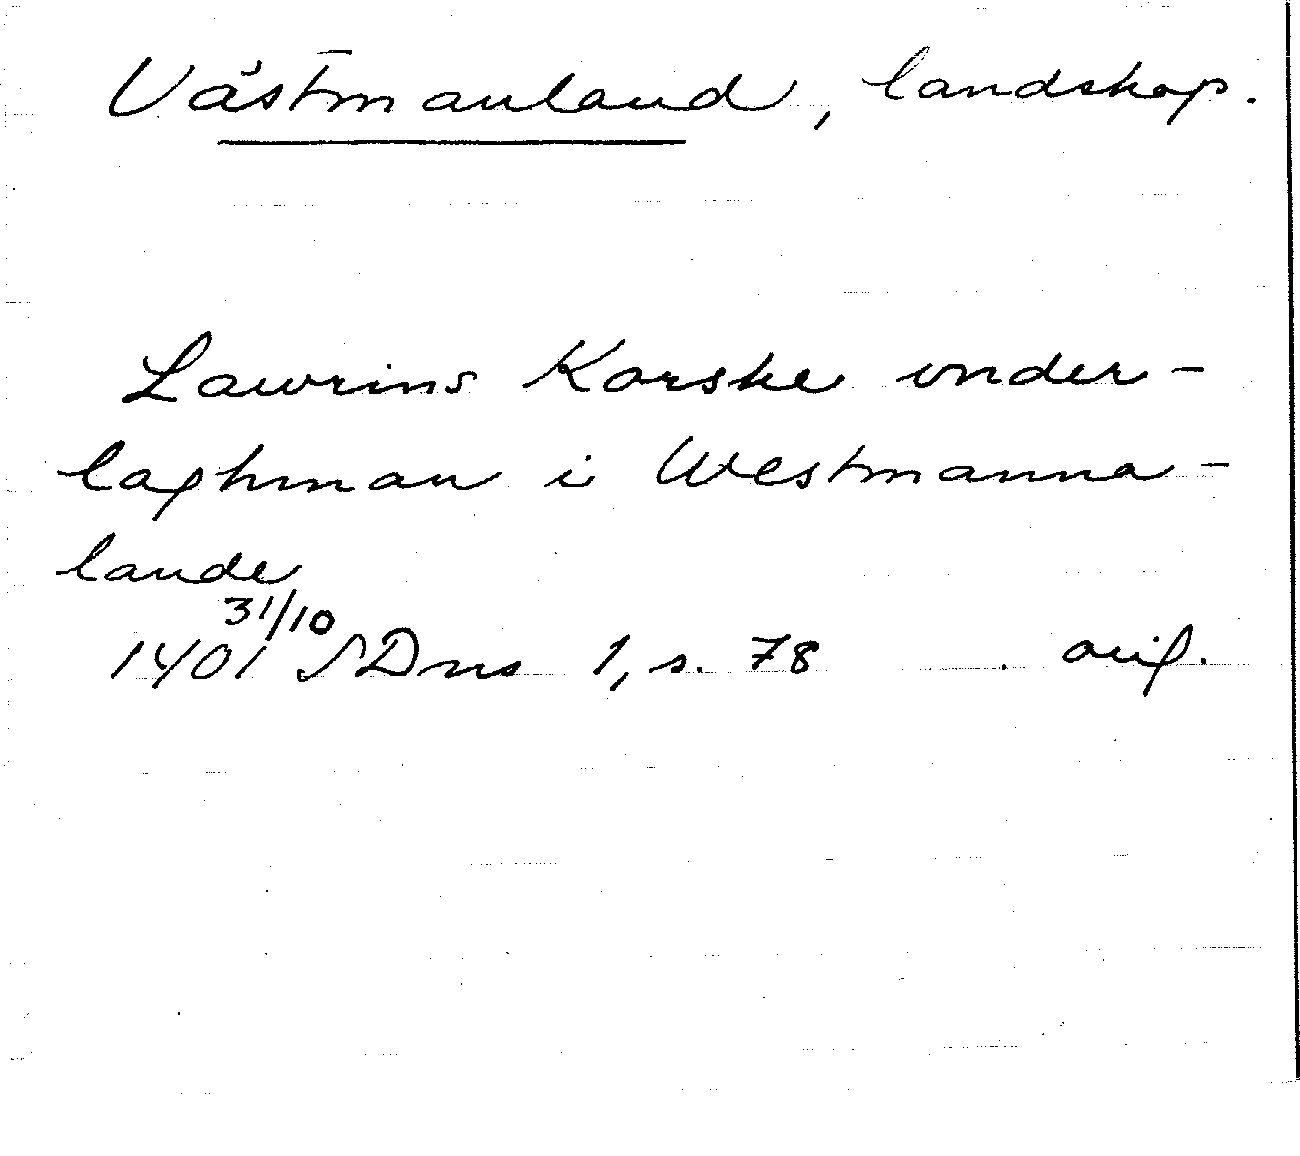 Västmanland, landskap.
Lawrins Karske vnder-
laghman i Westmanna-
lande
31/10
1401 SDns 1, s. 78 orig.